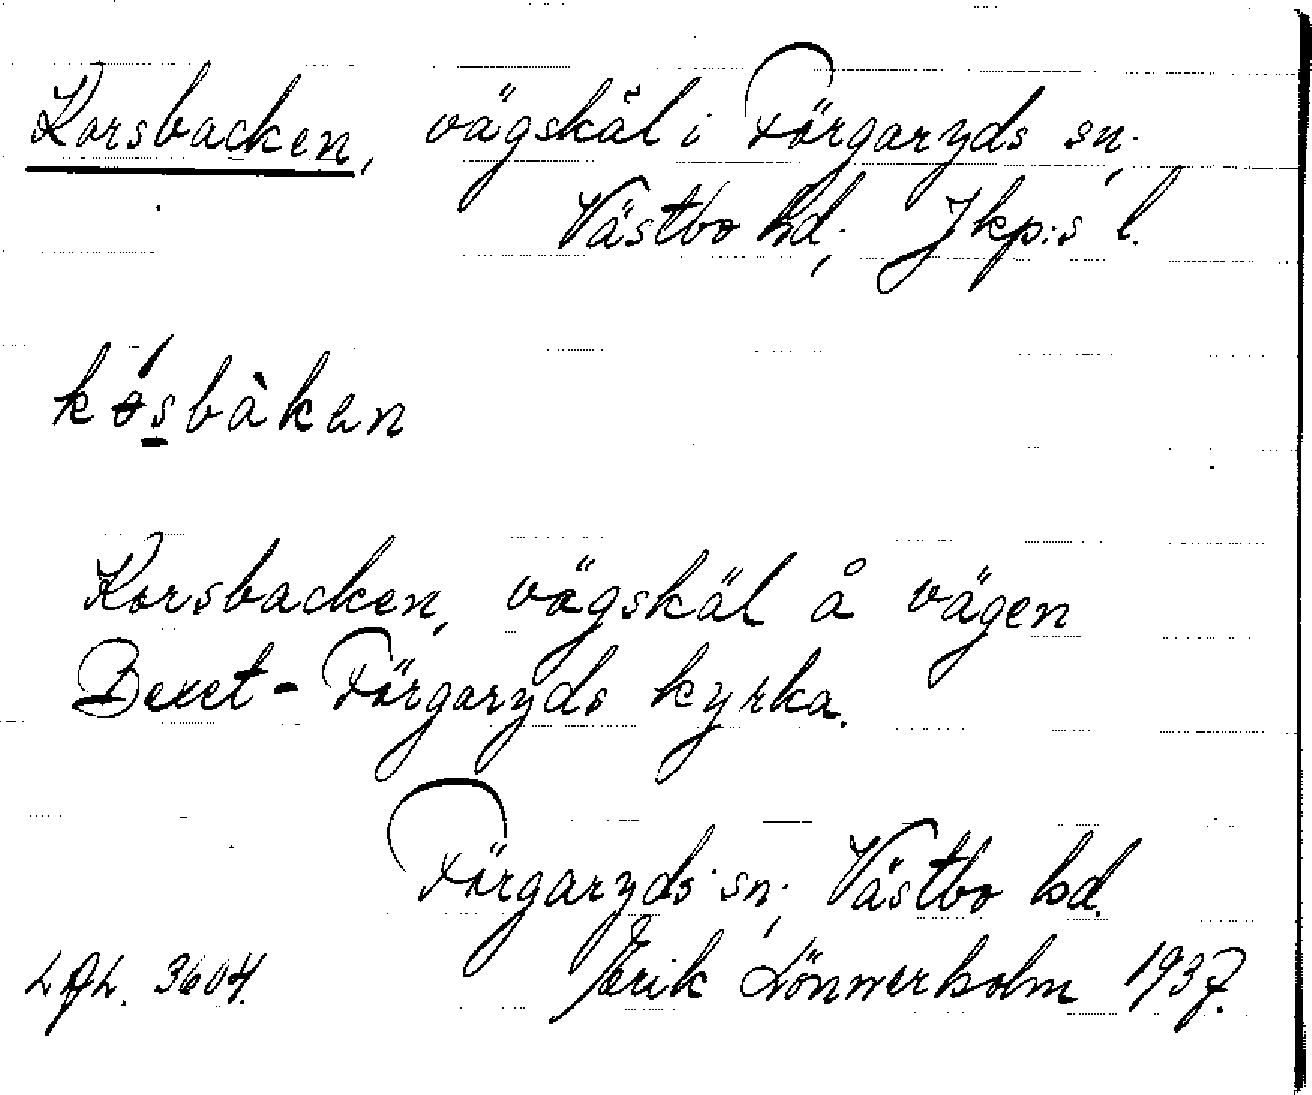 Korsbacken, vägskäl i Färgaryds sn;
Västbo hd; Jkp:s l.
køsbàkan
Korsbacken, vägskäl å vägen
Bexet - Färgaryds kyrka.
Färgaryds sn; Västbo hd.
LAL. 3604. Erik Lönnerholm 1937.